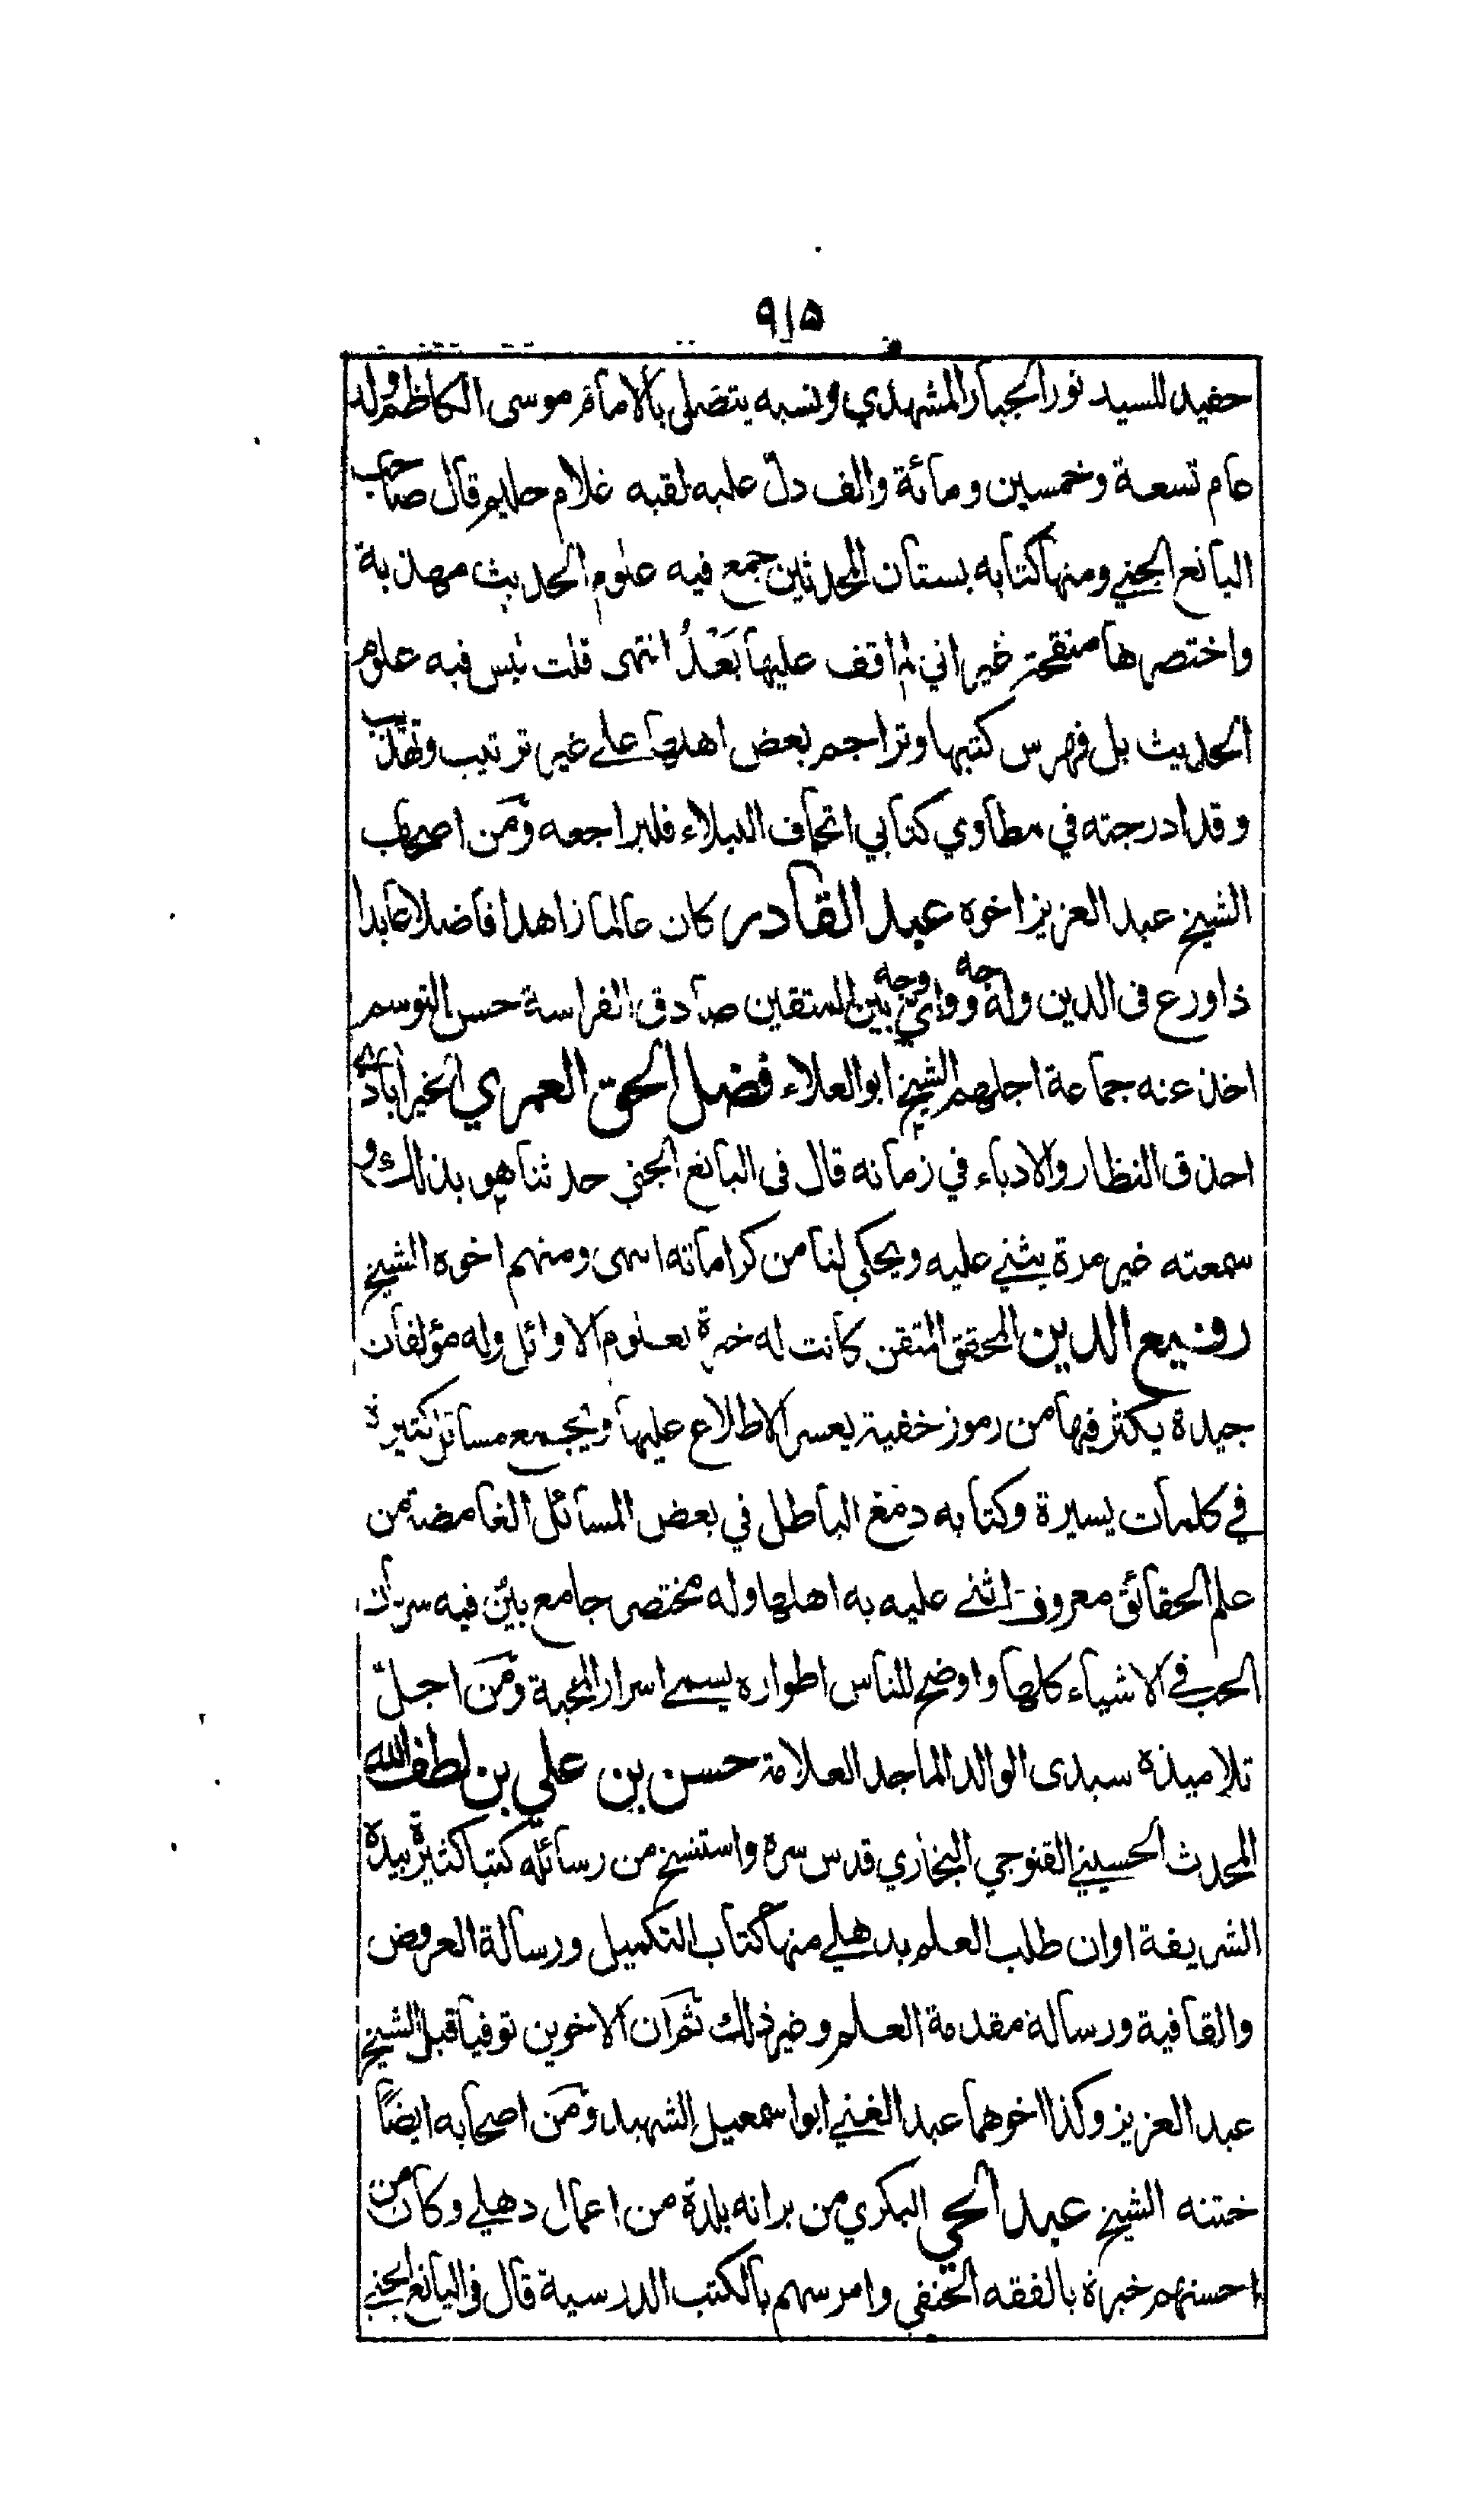 ٩١٥
حفيد للسيد نور الجبار المشهدي ونسبه يتصل بالامام موسى الكاظم ولد
عام تسعة وخمسين ومائة والف دل عليه لقبه غلام حليم قال صاحب
اليانع الجني ومنها كتابه بستان المحدثين جمع فيه علوم الحديث مهذبة
واختصرها منقحة غير اني لم اقف عليها بَعْدُ انتهى قلت ليس فيه علوم
الحديث بل فهرس كتبها وتراجم بعض اهلها على غير ترتيب وتهذيب
وقد ادرجته في مطاوي كتابي اتحاف النبلاء فليراجعه ومن اصحاب
الشيخ عبد العزيز اخوه عبد القادر كان عالما زاهدا فاضلا عابدا
ذا ورع في الدين وله وجه وواي وجه بين المتقين صادق الفراسة حسن التوسم
اخذ عنه جماعة اجلهم الشيخ ابو العلاء فضل الحق العمري الخيرآبادي
احذق النظار والادباء في زمانه قال في اليانع الجني حدثنا هو بذلك و
سمعته غير مرة يثني عليه ويحكي لنا من كراماته انتهى ومنهم اخوه الشيخ
رفيع الدين المحقق المتقن كانت له خبرة بعلوم الاوائل وله مؤلفات
جيدة يكثر فيها من رموز خفية يعسر الاطلاع عليها ويجمع مسائل كثيرة
في كلمات يسيرة وكتابه دمغ الباطل في بعض المسائل الغامضة من
علم الحقائق معروف اثنى عليه به اهلها وله مختصر جامع بين فيه سريان
الحب في الاشياء كلها واوضح للناس اطواره يسمى اسرار المحبة ومن اجل
تلاميذه سيدى الوالد الماجد العلامة حسن بن علي بن لطف الله
المحدث الحسيني القنوجي البخاري قدس سره واستنسخ من رسائله كتبا كثيرة بيده
الشريفة اوان طلب العلم بدهلي منها كتاب التكميل ورسالة العروض
والقافية ورسالة مقدمة العلم وغير ذلك ثم ان الاخوين توفيا قبل الشيخ
عبد العزيز وكذا اخوهما عبد الغني ابو اسمعيل الشهيد ومن اصحابه ايضًا
ختنه الشيخ عبد الحي البكري من برانه بلدة من اعمال دهلي وكان من
احسنهم خبرة بالفقه الحنفي وامرسهم بالكتب الدرسية قال في اليانع الجني